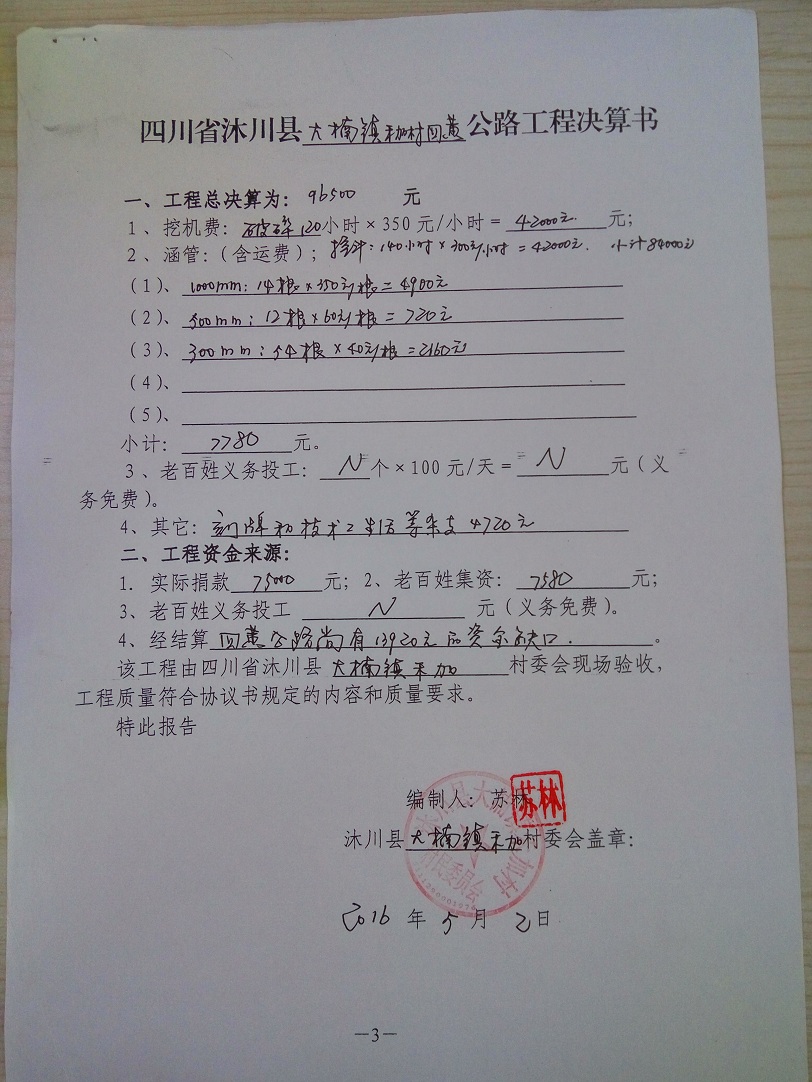 四川省沐川县大楠镇禾加村回黄公路工程决算书
一、工程总决算为：96500 元
1、挖机费：破碎120小时×350元/小时=42000元 元；
2、涵管：（含运费）；挖斗：140小时×300元/小时=42000元. 小计84000元
（1）、1000mm：14根×350元/根=4900元
（2）、500mm：12根×60元/根=720元
（3）、300mm：54根×40元/根=2160元
（4）、
（5）、
小计：7780元。
3、老百姓义务投工：N个×100元/天=N元（义
务免费）。
4、其它：刻牌和技术工生活等杂支4720元
二、工程资金来源：
1. 实际捐款75000元；2、老百姓集资：7580元；
3、老百姓义务投工 N 元（义务免费）。
4、经结算回黄公路尚有13920元的资金缺口.。
该工程由四川省沐川县大楠镇禾加村委会现场验收，
工程质量符合协议书规定的内容和质量要求。
特此报告
编制人：苏林
苏林
沐川县大楠镇禾加村委会盖章：
2016年5月2日
—3—